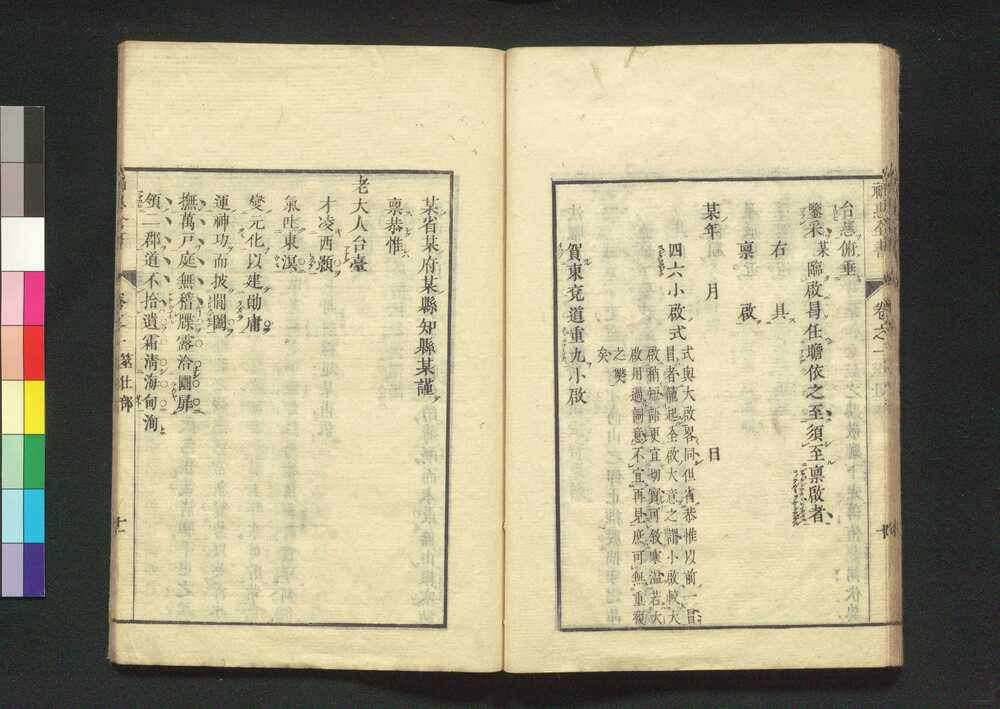 台慈俯垂
鑒采某臨啟曷任瞻依之至須至禀啟者
右具
禀啟
某年 月 日
四六小啟式
式與大啟畧同但省恭惟以前一冒
冒者籠起全啟大意之謂小啟較大
啟稍短語更宜切實可敘寒溫若大
啟用過詞意不宜再見庶可無重複
之獘
矣
賀東兗道重九小啟
卷之一
十
某省某府某縣知縣某謹
禀恭惟
老大人台臺
才凌西顥
氣吐東溟
燮元化以建勛庸
運神功而披閶闔
撫萬戸庭無稽牒露洽圜扉
領二郡道不拾遺霜清海甸洵
卷之一 筮仕部
十一